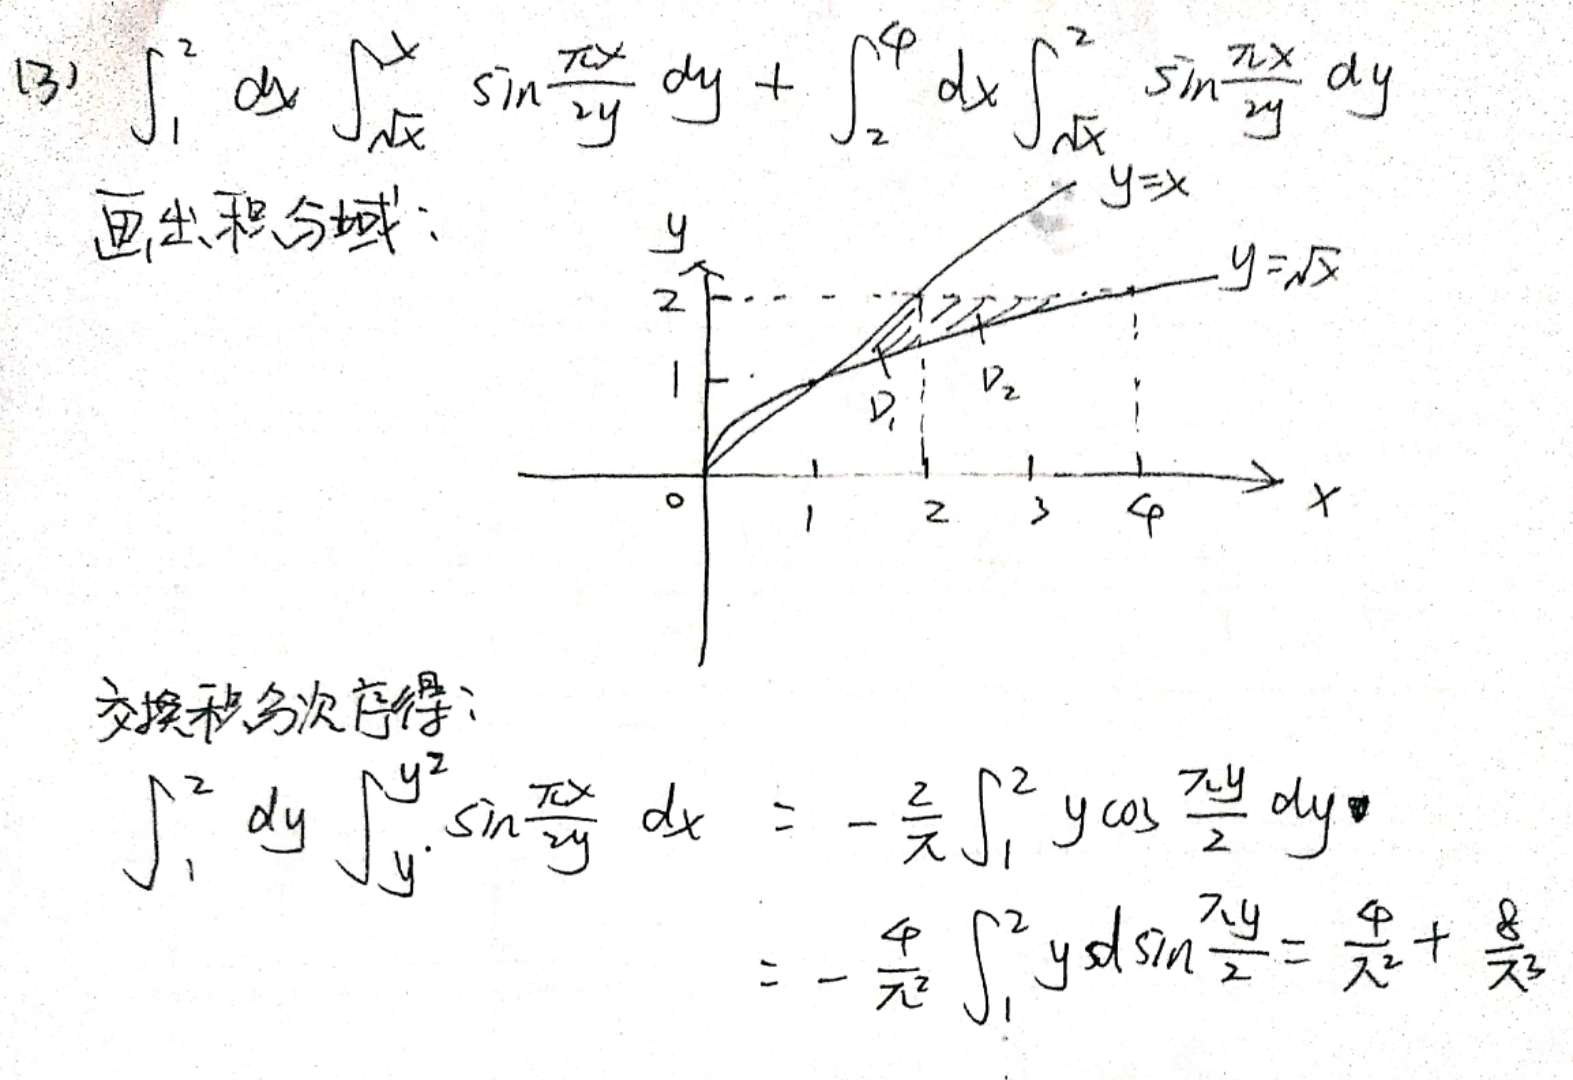 (3) ∫₁² dx ∫_{√x}^{x} sin πx/2y dy + ∫₂⁴ dx ∫_{√x}^{2} sin πx/2y dy
画出积分域:
y=x
y
y=√x
2
1
D₁ D₂
0 1 2 3 4 x
交换积分次序得:
∫₁² dy ∫_{y}^{y²} sin πx/2y dx = - 2/π ∫₁² y cos πy/2 dy
= - 4/π² ∫₁² y d sin πy/2 = 4/π² + 8/π³